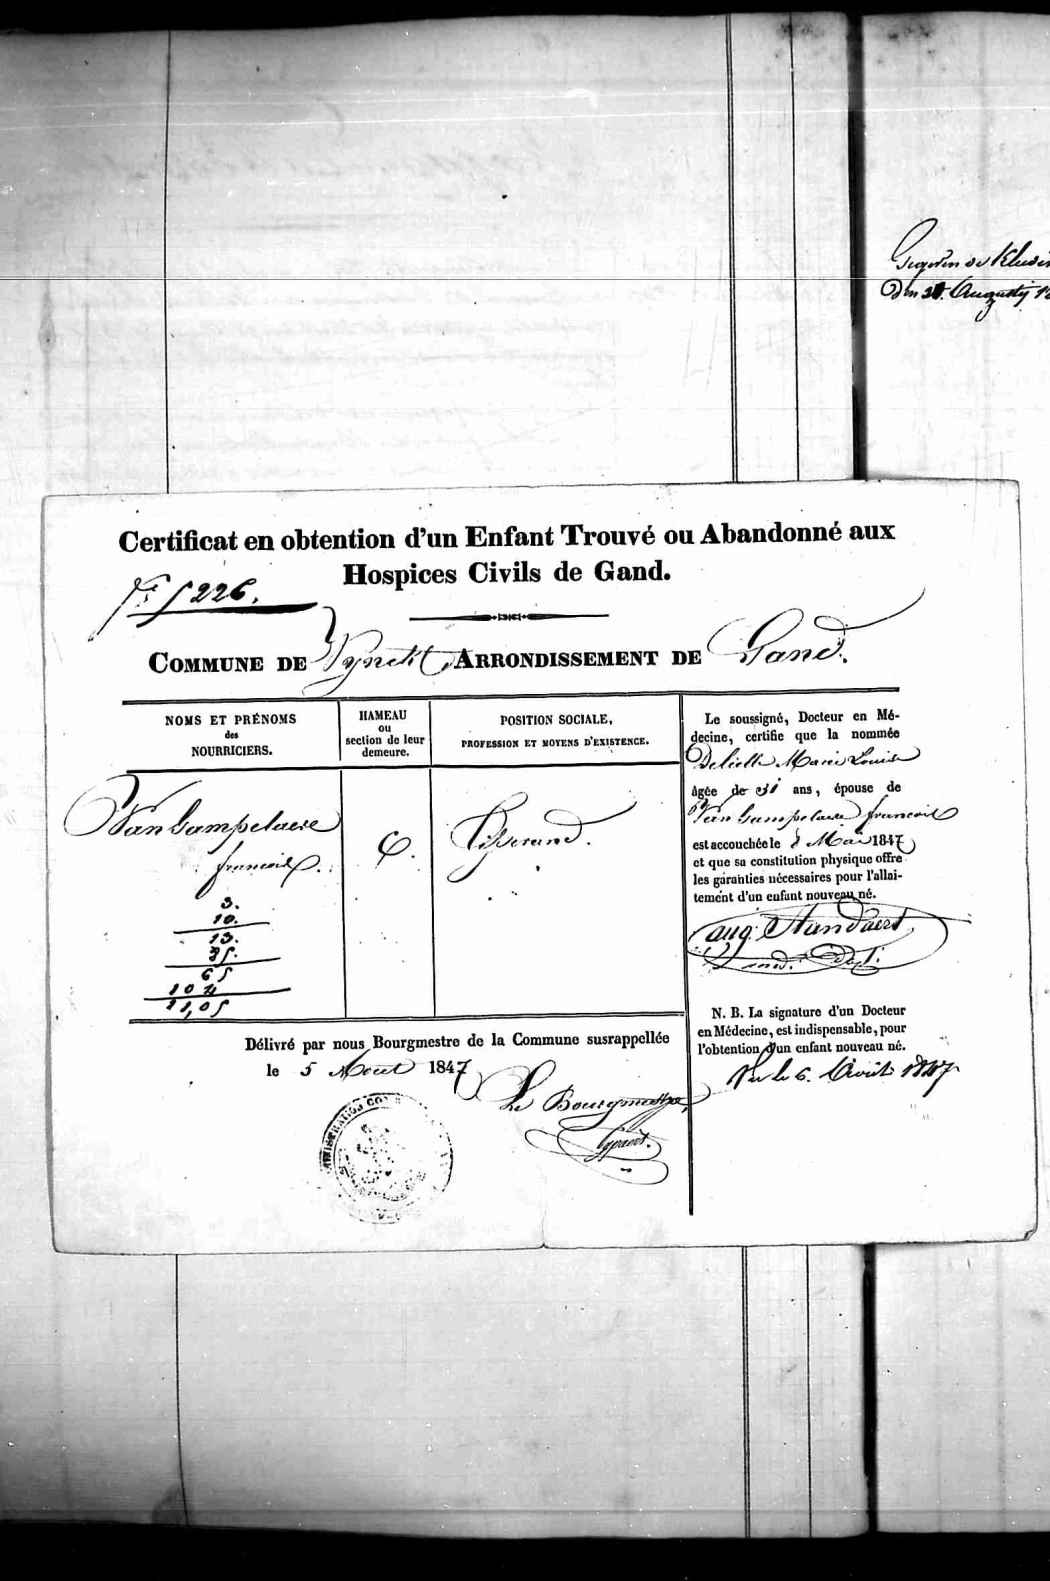 den 31. Augusty
Certificat en obtention d'un Enfant Trouvé ou Abandonné aux
Hospices Civils de Gand.
No 5226.
COMMUNE DE Vynckt ARRONDISSEMENT DE Gand.
NOMS ET PRÉNOMS
des
NOURRICIERS.
HAMEAU
ou
section de leur
demeure.
POSITION SOCIALE,
PROFESSION ET MOYENS D'EXISTENCE.
Van Gampelaere
francois.
C.
Tisserand.
3.
10.
13.
35.
65
104
11,05
Le soussigné, Docteur en Mé-
decine, certifie que la nommée
Delielle Marie Louise
âgée de 31 ans, épouse de
Van Gampelaere francois
est accouchée le Mai 1847
et que sa constitution physique offre
les garanties nécessaires pour l'allai-
tement d'un enfant nouveau né.
aug. Standaert
med. Doct.
N. B. La signature d'un Docteur
en Médecine, est indispensable, pour
l'obtention d'un enfant nouveau né.
Vu le 6. Août 1847
Délivré par nous Bourgmestre de la Commune susrappellée
le 5 Aout 1847
Le Bourgmestre,